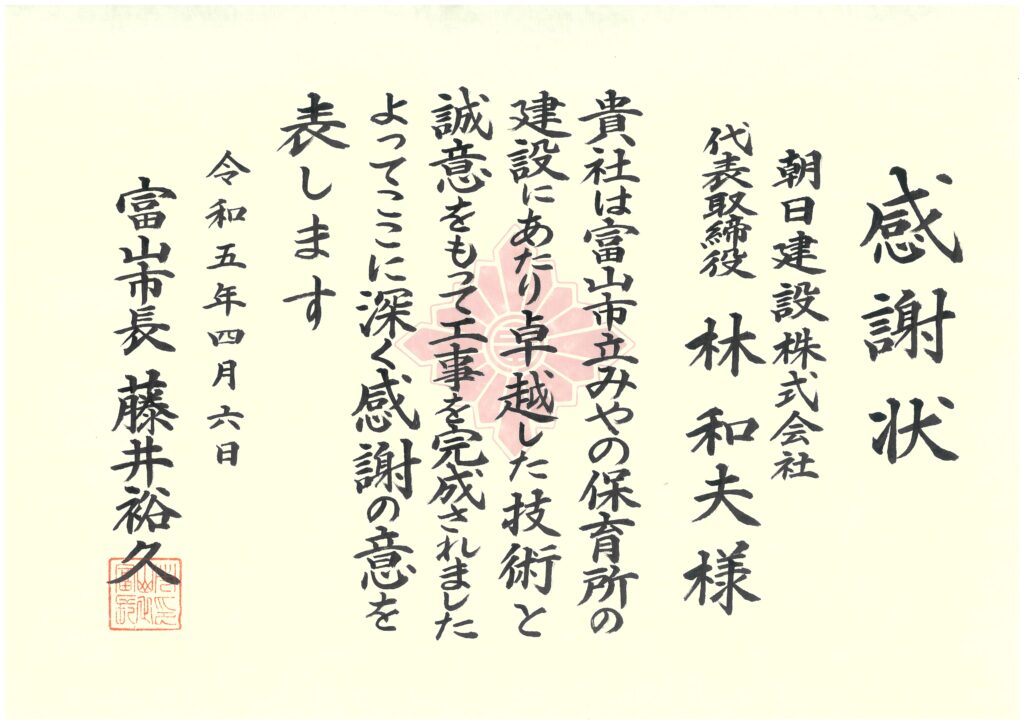 感謝状
朝日建設株式会社
代表取締役 林和夫様
貴社は富山市立みやの保育所の
建設にあたり卓越した技術と
誠意をもって工事を完成されました
よってここに深く感謝の意を
表します
令和五年四月六日
富山市長 藤井裕久